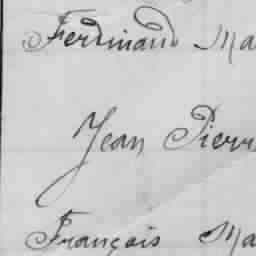 Ferdinand Ma
Jean Pierr
François Ma